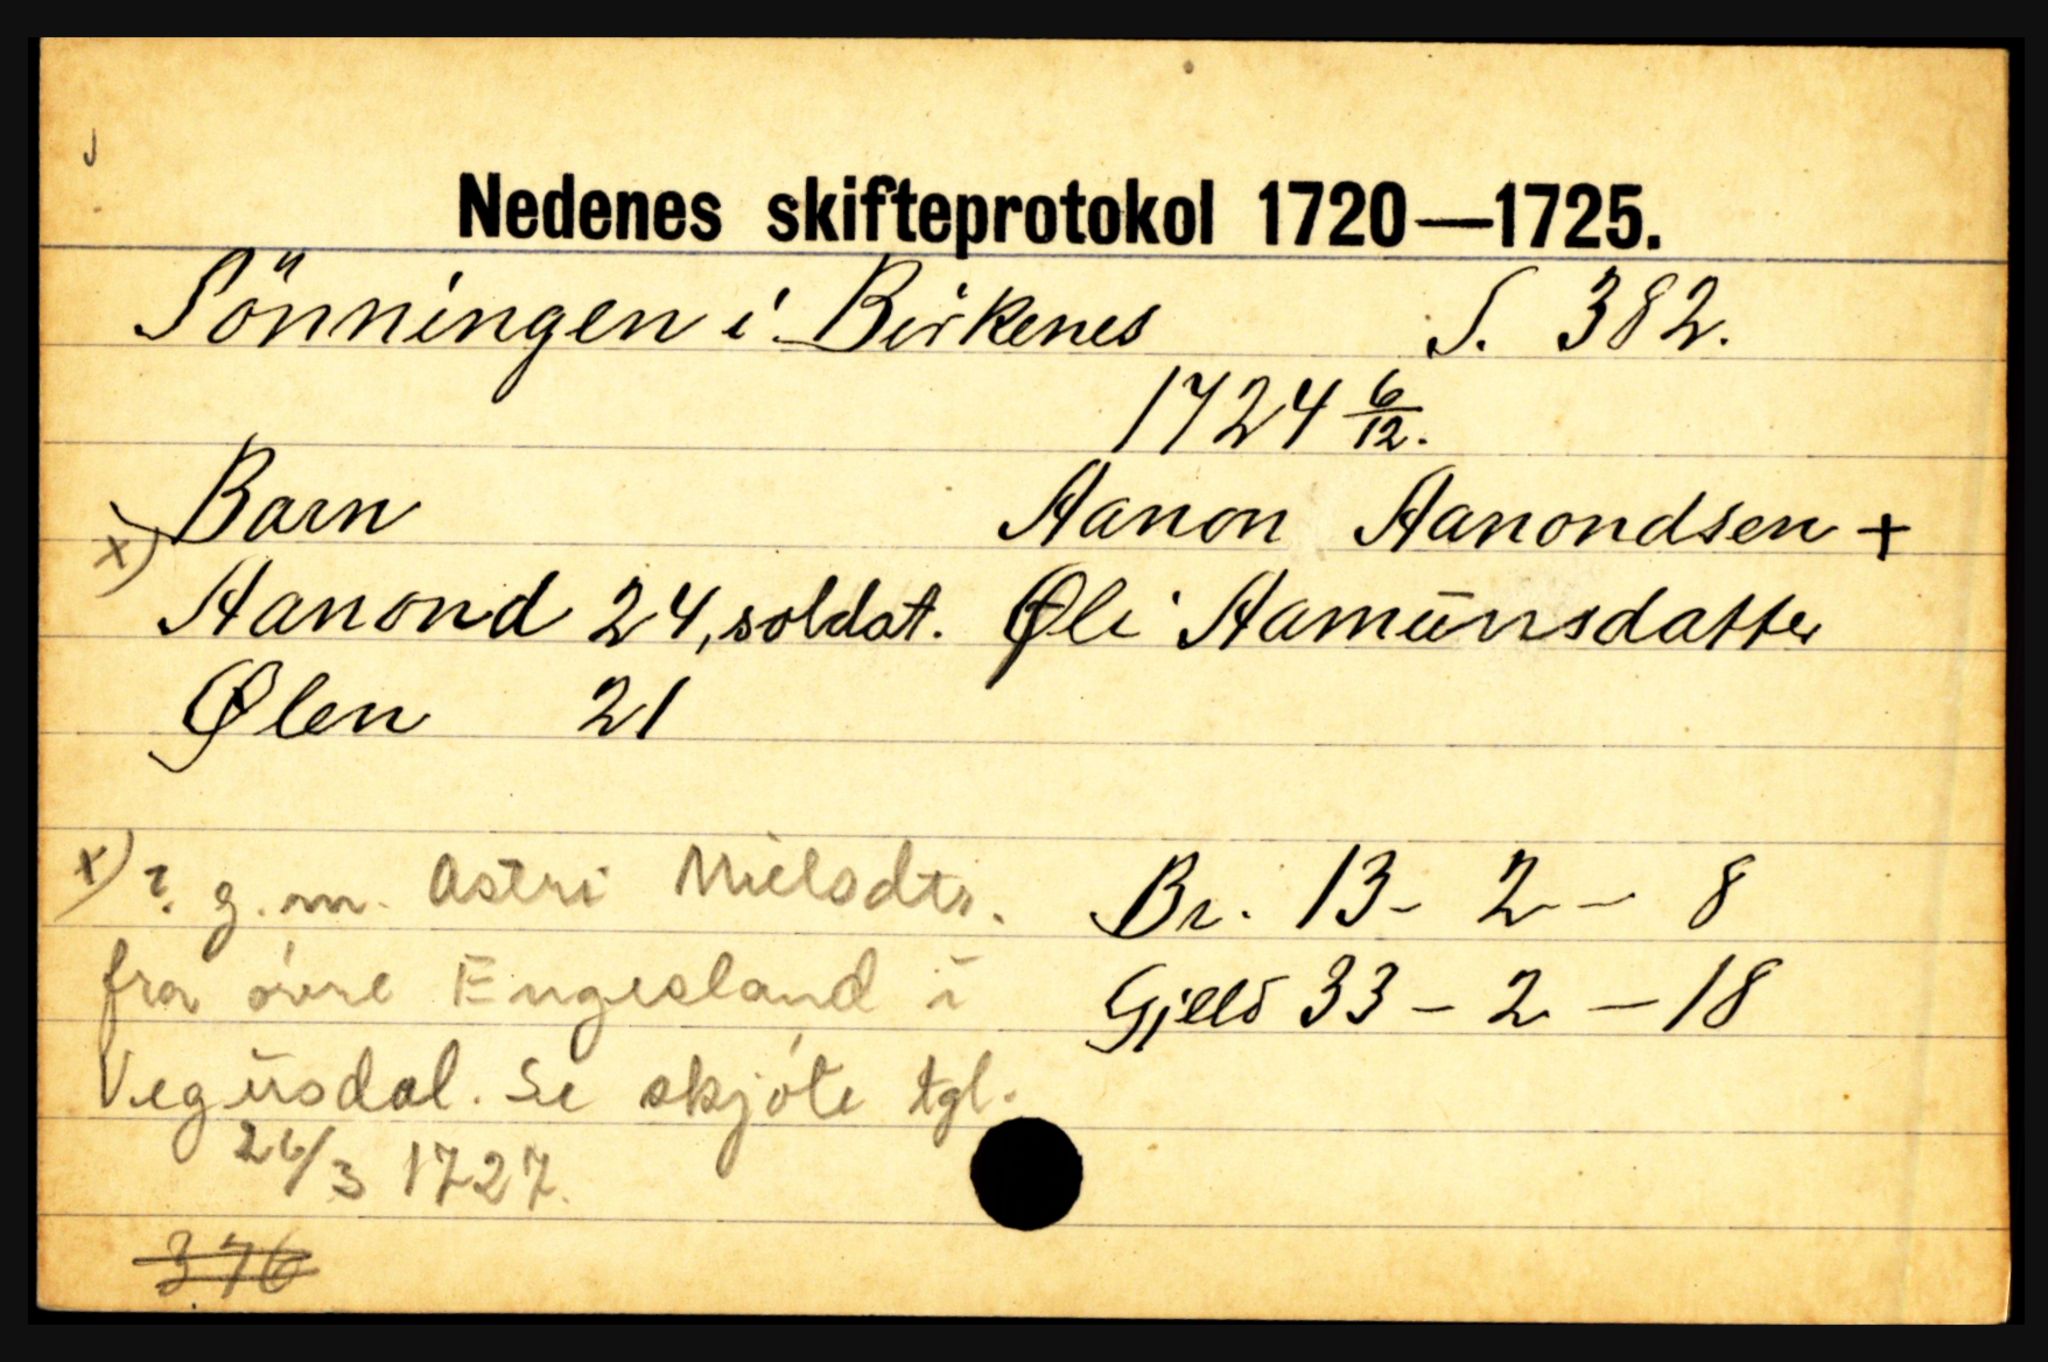 Nedenes skifteprotokol 1720—1725.
Sönningen i Birkenes S. 382.
1724 6/12.
Barn Aanon Aanondsen +
x) Aanond 24, soldat. Øli Aamunsdatter
Ølen 21
x) ?. g.m. Astri Nielsdtr. Br. 13 - 2 - 8
fra óvre Engesland i Gjeld 33 - 2 - 18
Vegusdal. Se skjóte tgl.
26/3 1727.
376